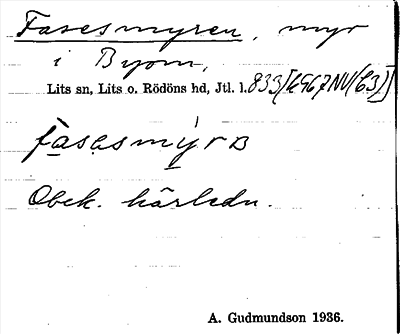 Fasesmyren, myr
i Byom,
Lits sn, Lits o. Rödöns hd, Jtl. l. 833
fasasmýrɞ
Obek. härledn.
A. Gudmundson 1936.